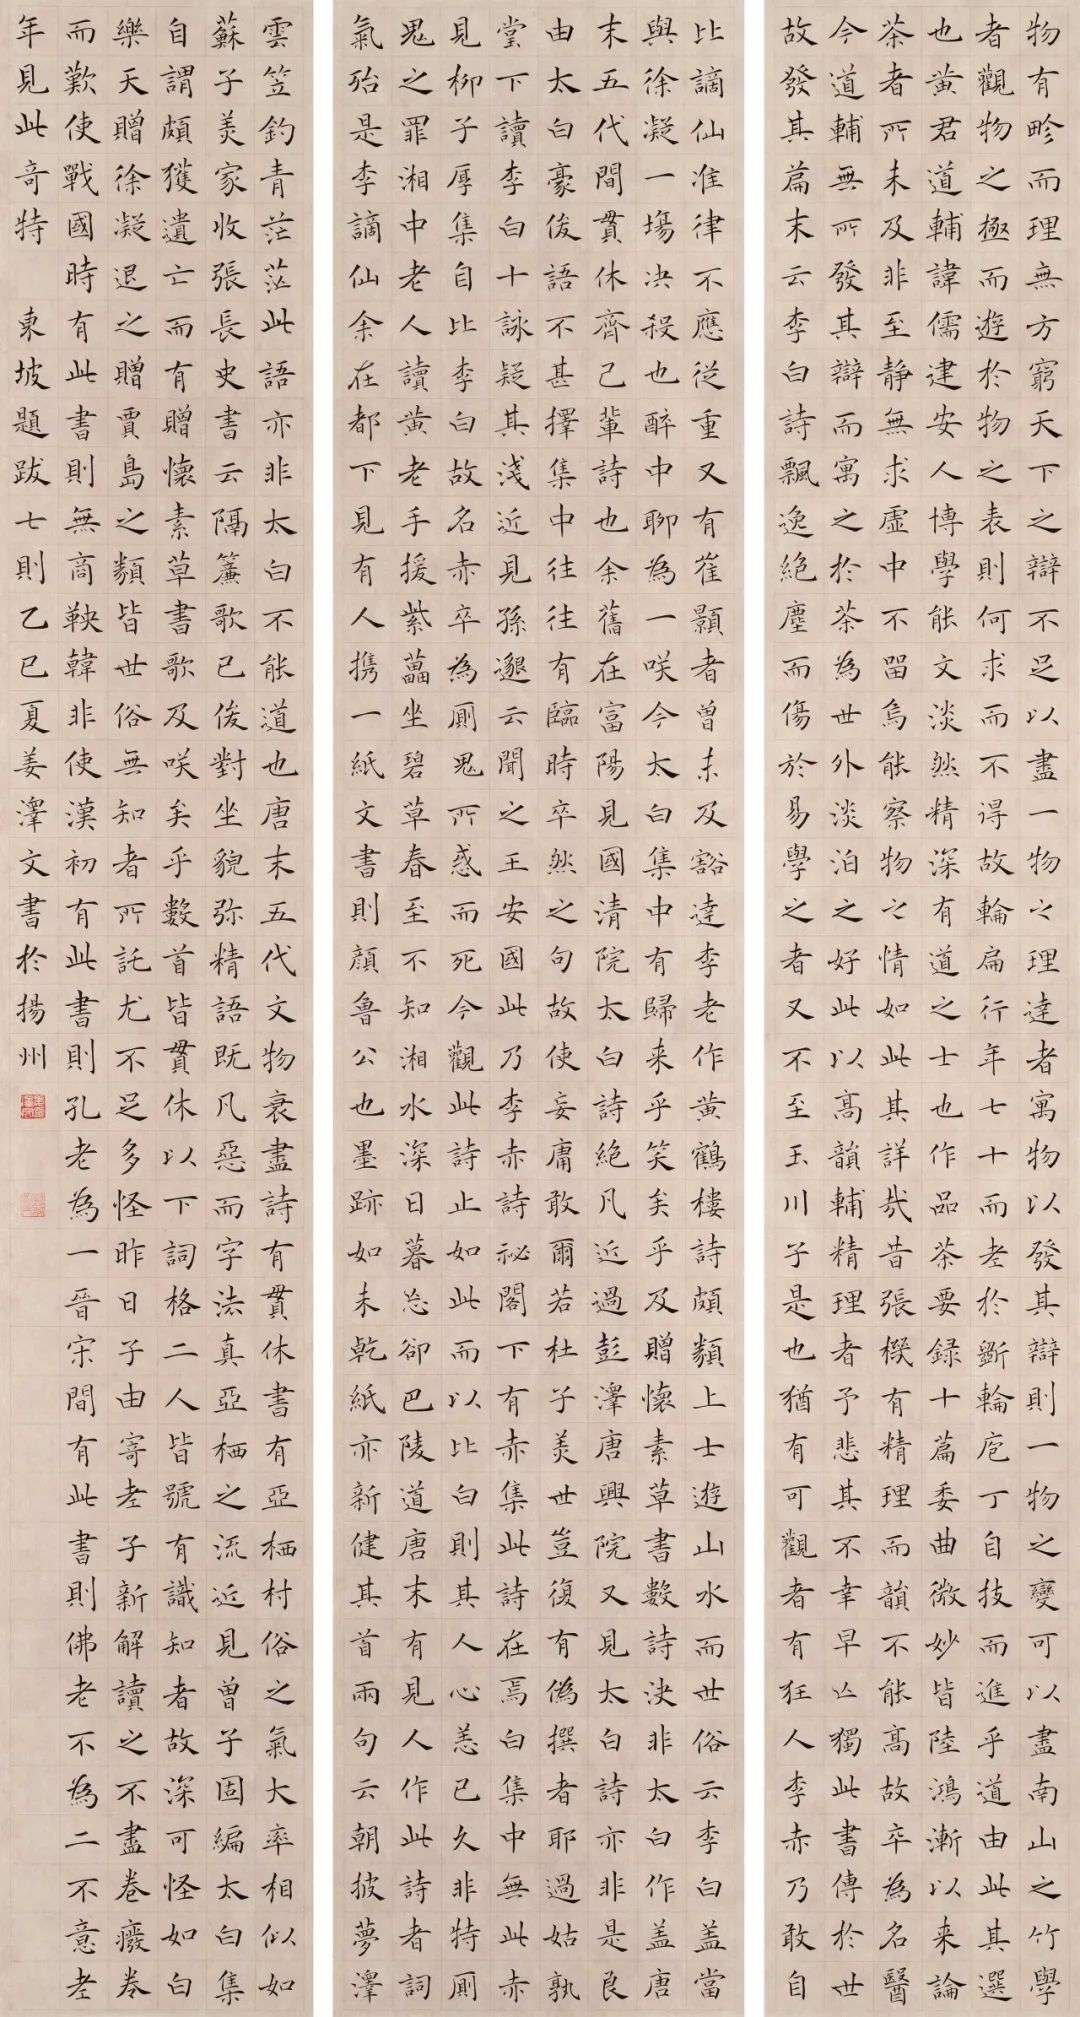 物有畛而理無方窮天下之辯不足以盡一物之理達者寓物以發其辯則一物之變可以盡南山之竹學
者觀物之極而遊於物之表則何求而不得故輪扁行年七十而老於斲輪庖丁自技而進乎道由此其選
也黄君道輔諱儒建安人博學能文淡然精深有道之士也作品茶要録十篇委曲微妙皆陸鴻漸以来論
茶者所未及非至静無求虚中不留烏能察物之情如此其詳哉昔張機有精理而韻不能高故卒為名醫
今道輔無所發其辯而寓之於茶為世外淡泊之好此以高韻輔精理者予悲其不幸早亡獨此書傳於世
故發其篇末云李白詩飄逸絶塵而傷於易學之者又不至玉川子是也猶有可觀者有狂人李赤乃敢自
比謫仙准律不應從重又有崔顥者曾未及豁達李老作黄鶴樓詩頗類上士遊山水而世俗云李白盖當
與徐凝一場決殺也醉中聊為一咲今太白集中有歸来乎笑矣乎及贈懷素草書數詩決非太白作盖唐
末五代間貫休齊己輩詩也余舊在富陽見國清院太白詩絶凡近過彭澤唐興院又見太白詩亦非是良
由太白豪俊語不甚擇集中往往有臨時卒然之句故使妄庸敢爾若杜子美世豈復有偽撰者耶過姑孰
堂下讀李白十詠疑其淺近見孫邈云聞之王安國此乃李赤詩祕閣下有赤集此詩在焉白集中無此赤
見柳子厚集自比李白故名赤卒為厠鬼所惑而死今觀此詩止如此而以比白則其人心恙已久非特厠
鬼之罪湘中老人讀黄老手援紫藟坐碧草春至不知湘水深日暮忘卻巴陵道唐末有見人作此詩者詞
氣殆是李謫仙余在都下見有人携一紙文書則顔魯公也墨跡如未乾紙亦新健其首兩句云朝披夢澤
雲笠釣青茫茫此語亦非太白不能道也唐末五代文物衰盡詩有貫休書有亞栖村俗之氣大率相似如
蘇子美家收張長史書云隔簾歌已俊對坐貌弥精語既凡惡而字法真亞栖之流近見曾子固編太白集
自謂頗獲遺亡而有贈懷素草書歌及咲矣乎數首皆貫休以下詞格二人皆號有識知者故深可怪如白
樂天贈徐凝退之贈賈島之類皆世俗無知者所託尤不足多怪昨日子由寄老子新解讀之不盡卷癈卷
而歎使戰國時有此書則無商鞅韓非使漢初有此書則孔老為一晋宋間有此書則佛老不為二不意老
年見此奇特 東坡題跋七則乙巳夏姜澤文書於揚州